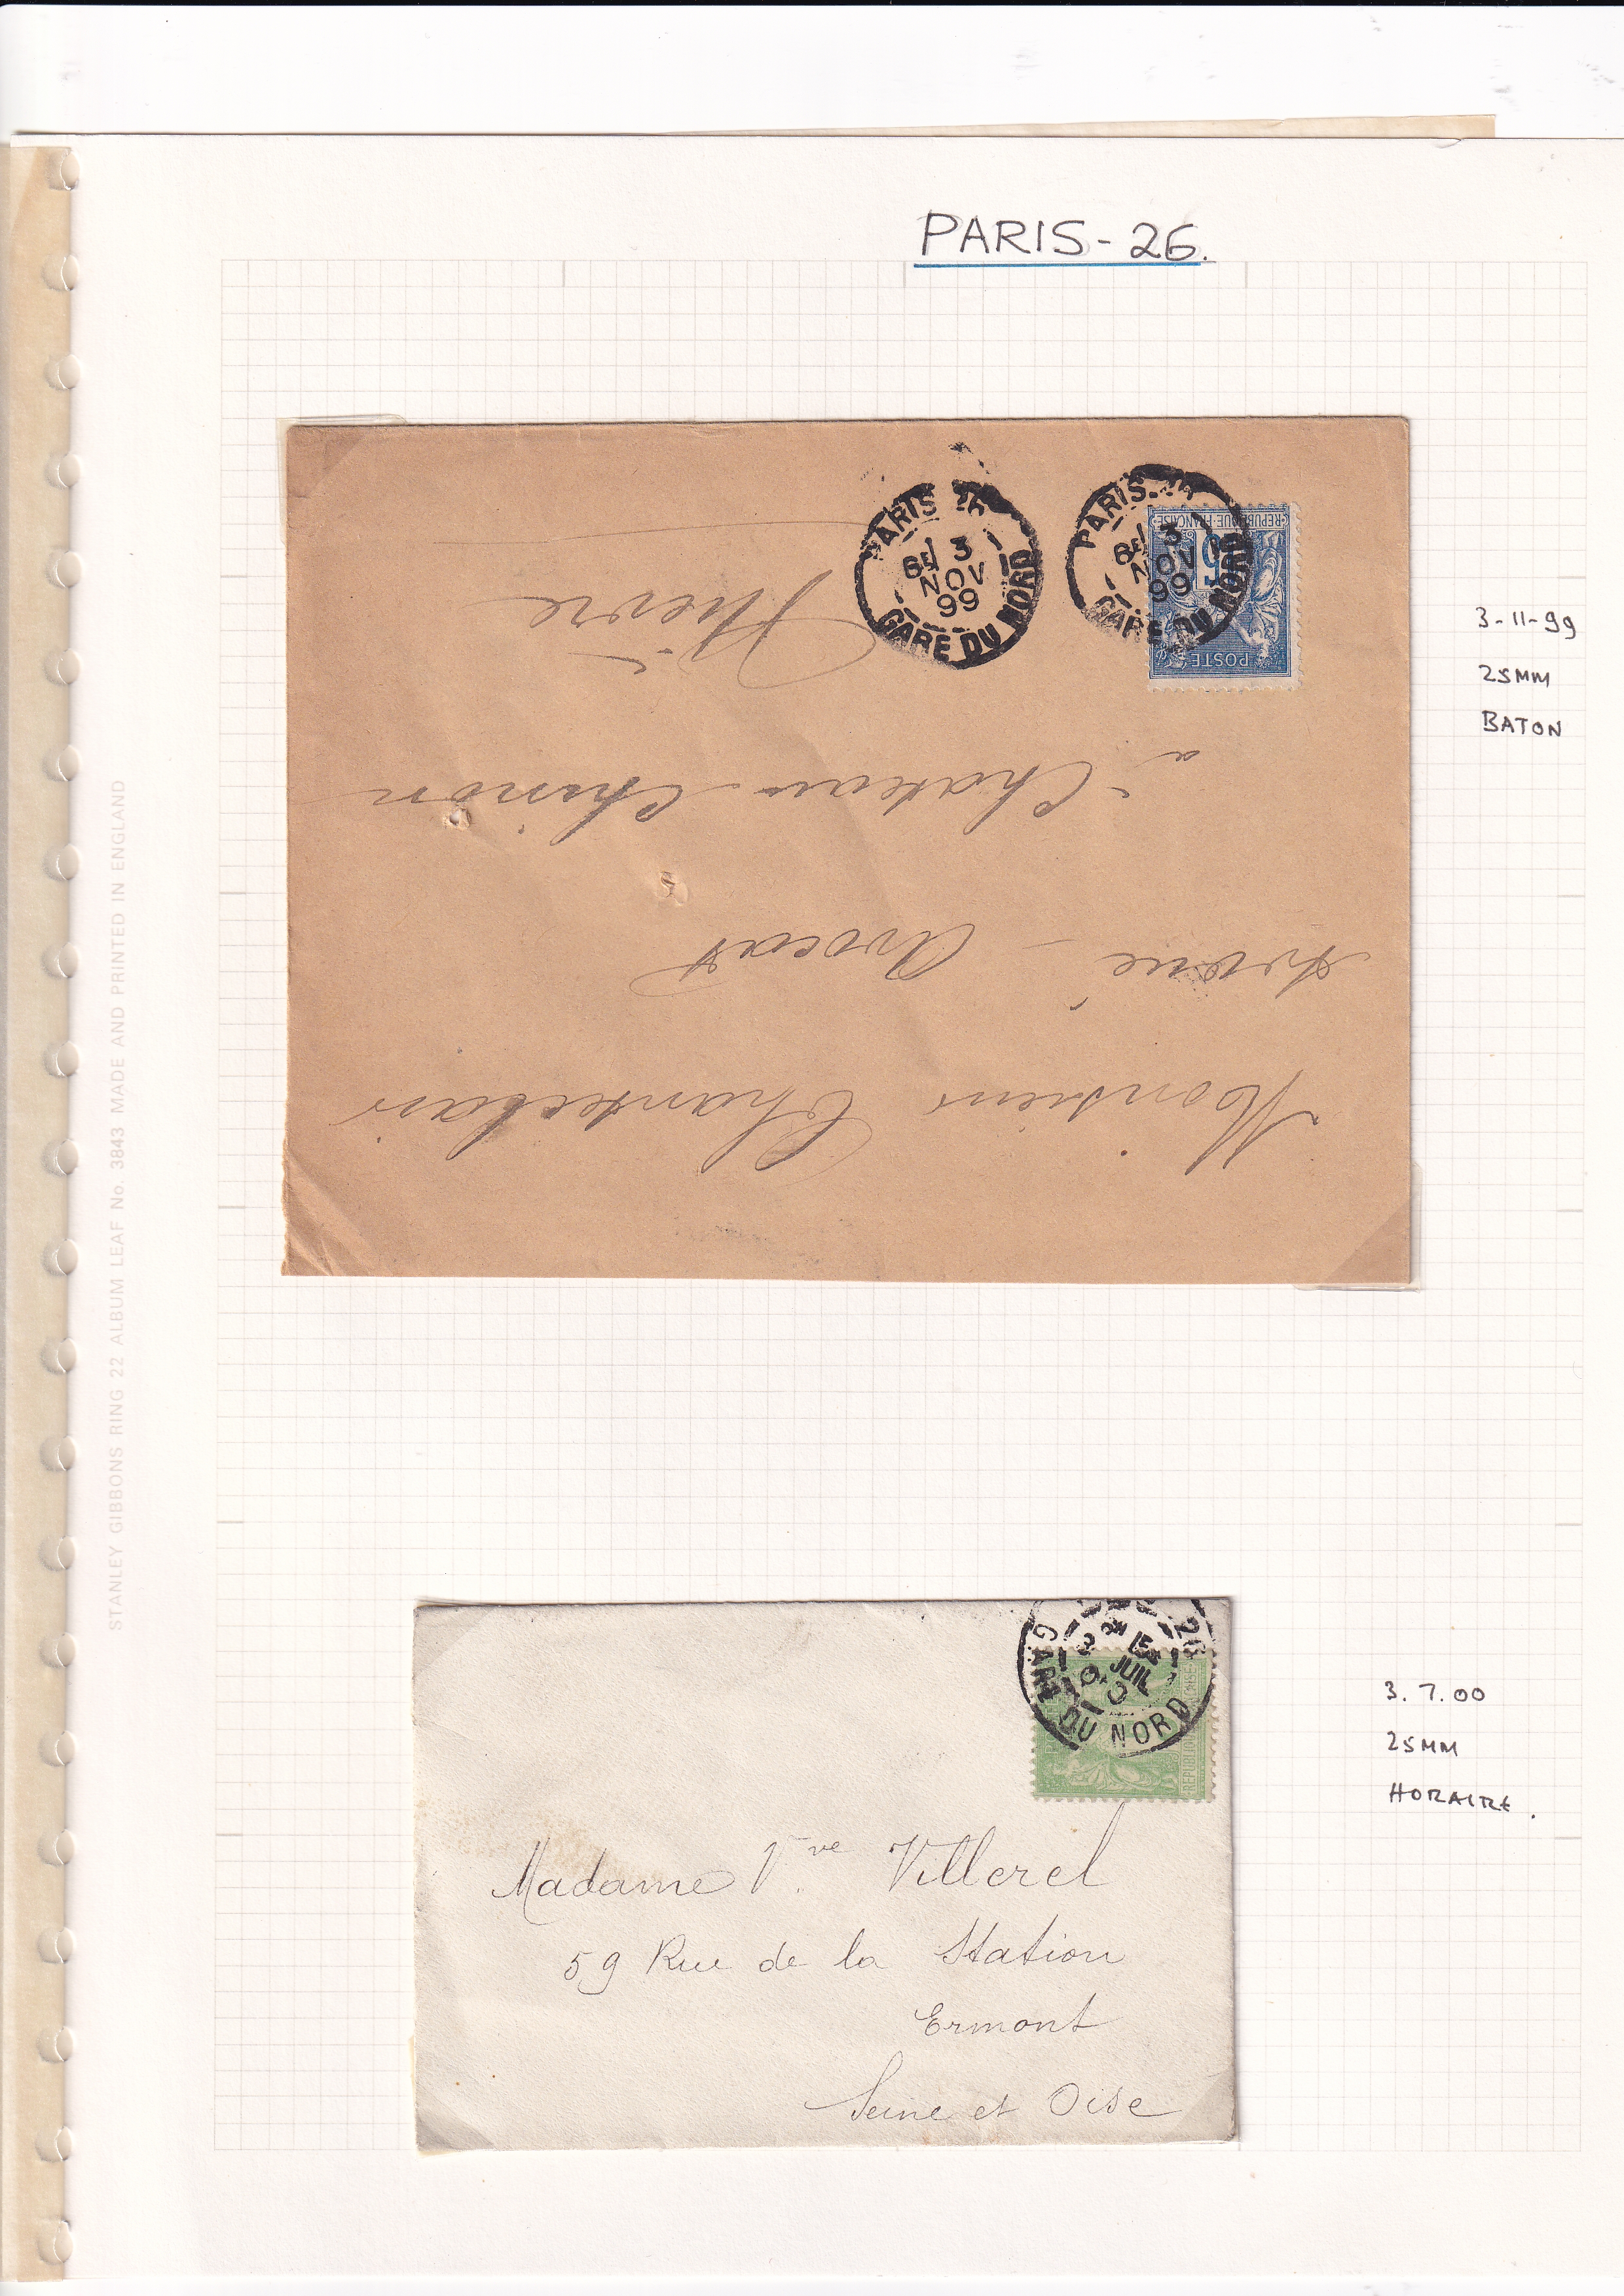 PARIS-26.
PARIS 26
6E/ 3
NOV
99
GARE DU NORD
PARIS-26
6E/ 3
NOV
99
GARE DU NORD
REPUBLIQUE FRANÇAISE
15
POSTE
Monsieur Chanteclair
Avoué - Avocat
à Chateau-Chinon
Nièvre
3-11-99
25MM
BATON
26
JUIL
GARE DU NORD
Madame Vve Villerel
59 Rue de la Station
Ermont
Seine et Oise
3.7.00
25MM
HORAIRE.
STANLEY GIBBONS RING 22 ALBUM LEAF No. 3843 MADE AND PRINTED IN ENGLAND